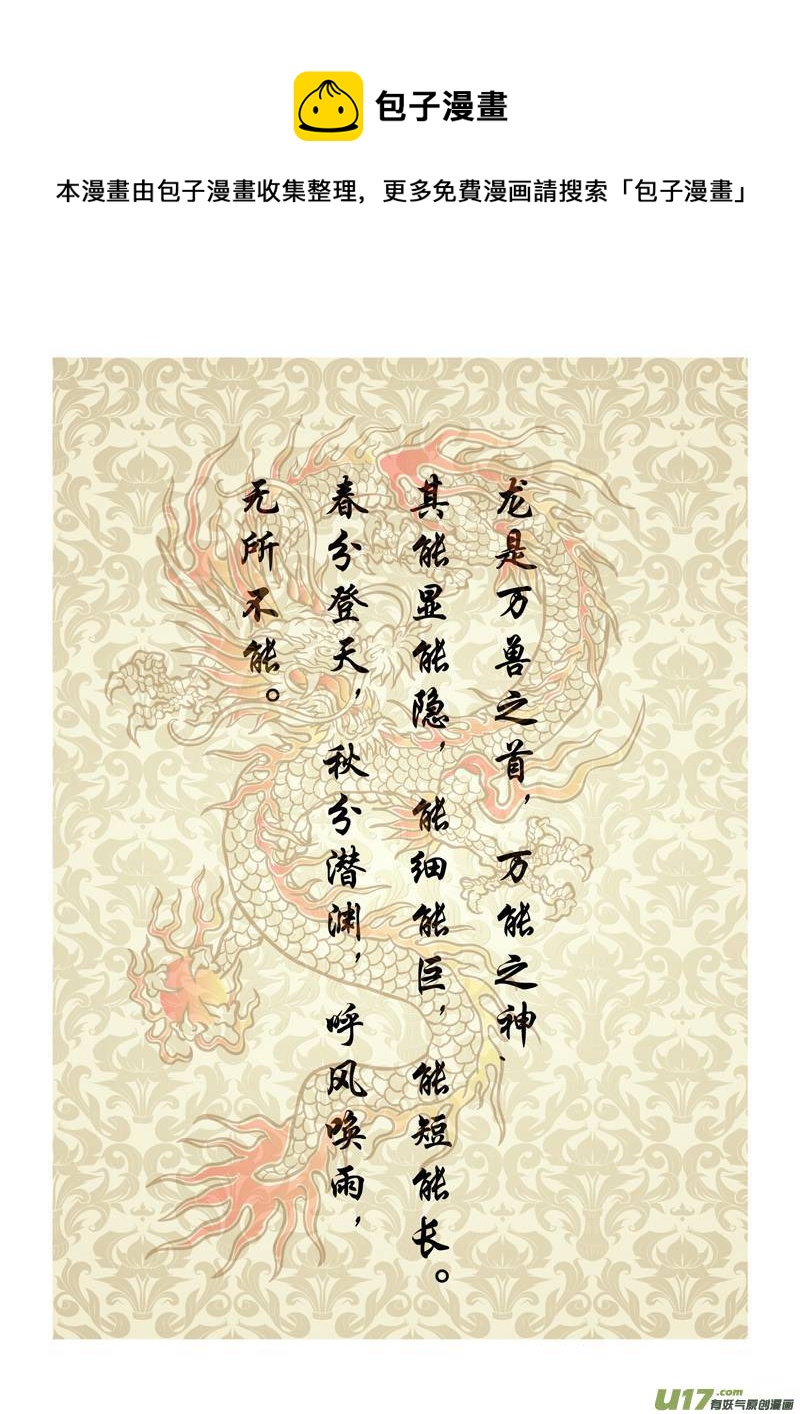 包子漫畫
本漫畫由包子漫畫收集整理，更多免費漫画請搜索「包子漫畫」
龙是万兽之首，万能之神、
其能显能隐，能细能巨，能短能长。
春分登天，秋分潜渊，呼风唤雨，
无所不能。
U17.com
有妖气原创漫画